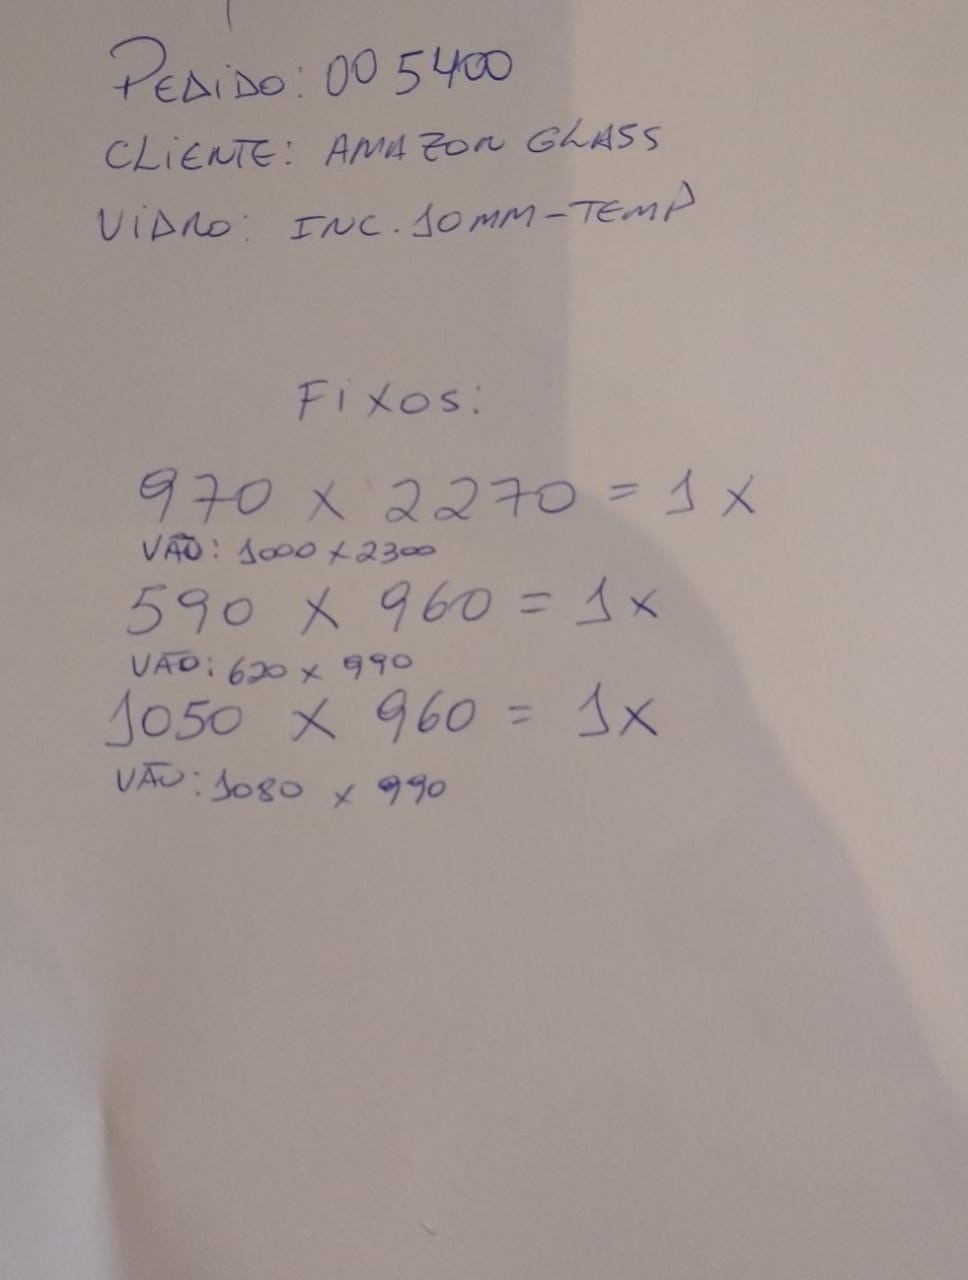 PEDIDO: 005400
CLIENTE: AMAZON GLASS
VIDRO: INC. 10MM-TEMP
FIXOS:
970 X 2270 = 1 X
VÃO: 1000 X 2300
590 X 960 = 1 X
VÃO: 620 X 990
1050 X 960 = 1X
VÃO: 1080 X 990